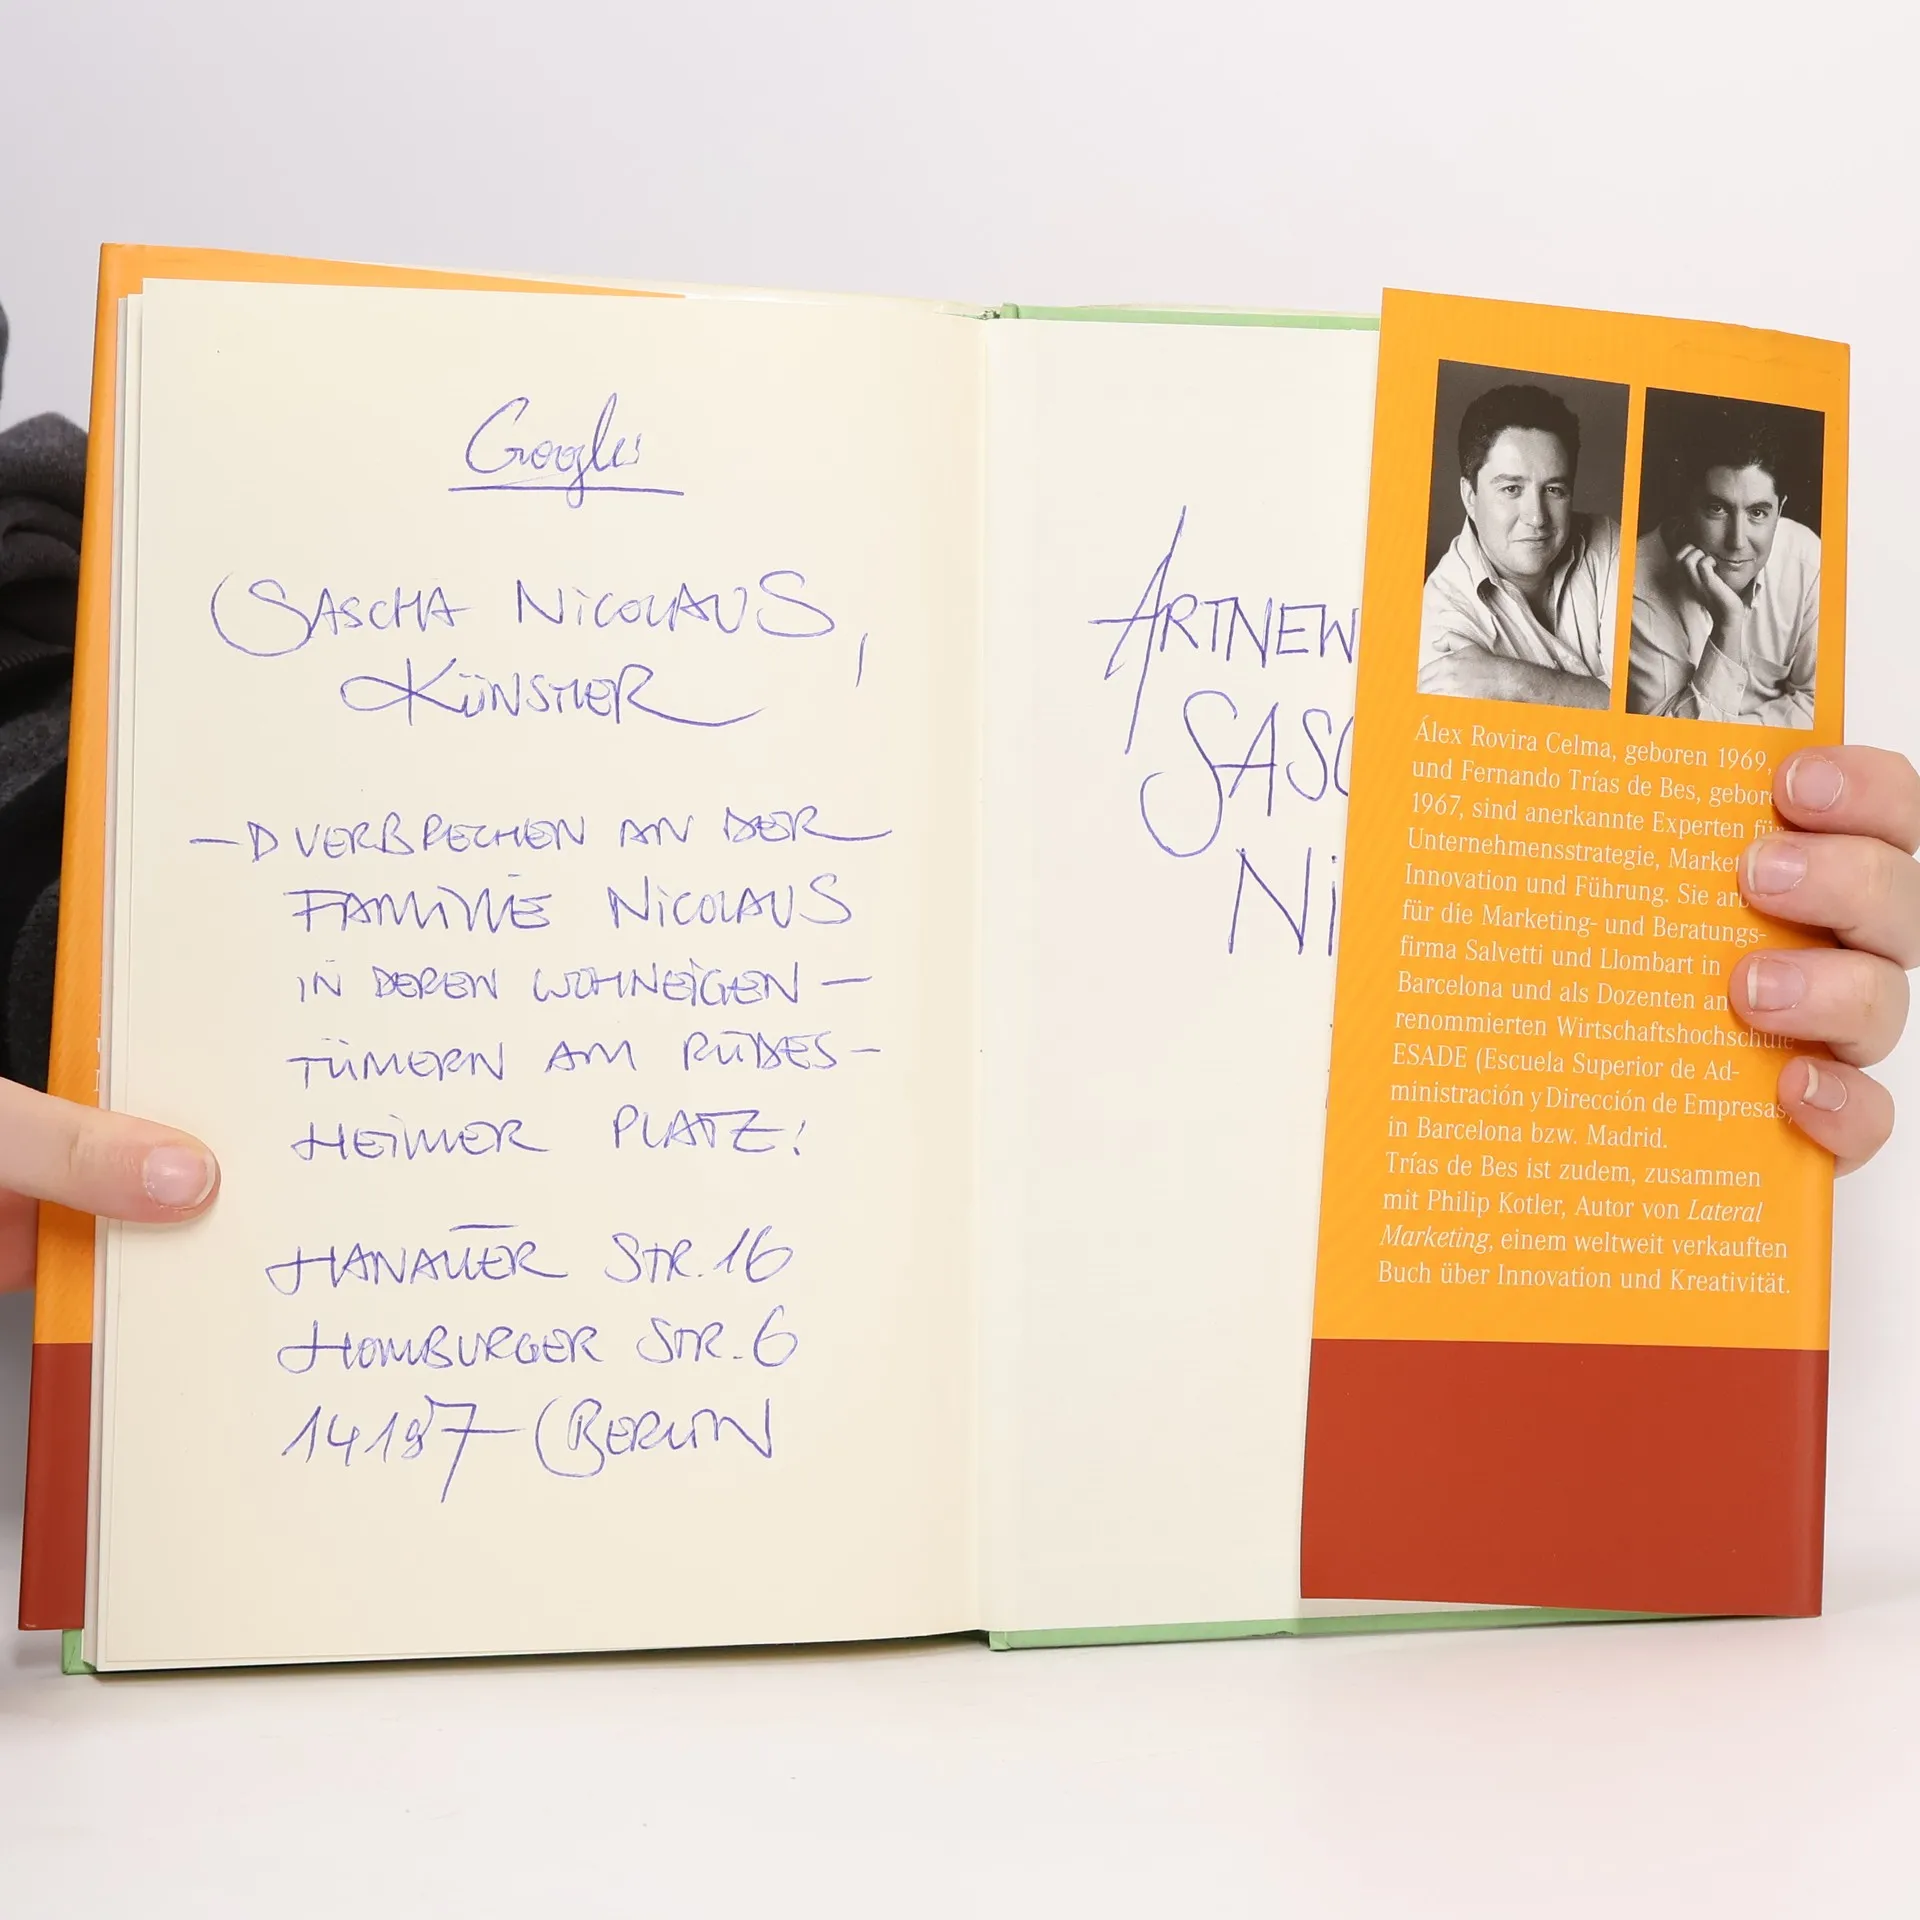 Google
SASCHA NICOLAUS,
KÜNSTLER
VERBRECHEN AN DER
FAMILIE NICOLAUS
IN DEREN WOHNEIGEN-
TÜMERN AM RÜDES-
HEIMER PLATZ!
HANAUER STR. 16
HOMBURGER STR. 6
14197 BERLIN
ARTNEW
SASC
Ni
Álex Rovira Celma, geboren 1969,
und Fernando Trías de Bes, gebore
1967, sind anerkannte Experten für
Unternehmensstrategie, Market
Innovation und Führung. Sie arb
für die Marketing- und Beratungs-
firma Salvetti und Llombart in
Barcelona und als Dozenten an
renommierten Wirtschaftshochschule
ESADE (Escuela Superior de Ad-
ministración y Dirección de Empresas,
in Barcelona bzw. Madrid.
Trías de Bes ist zudem, zusammen
mit Philip Kotler, Autor von Lateral
Marketing, einem weltweit verkauften
Buch über Innovation und Kreativität.